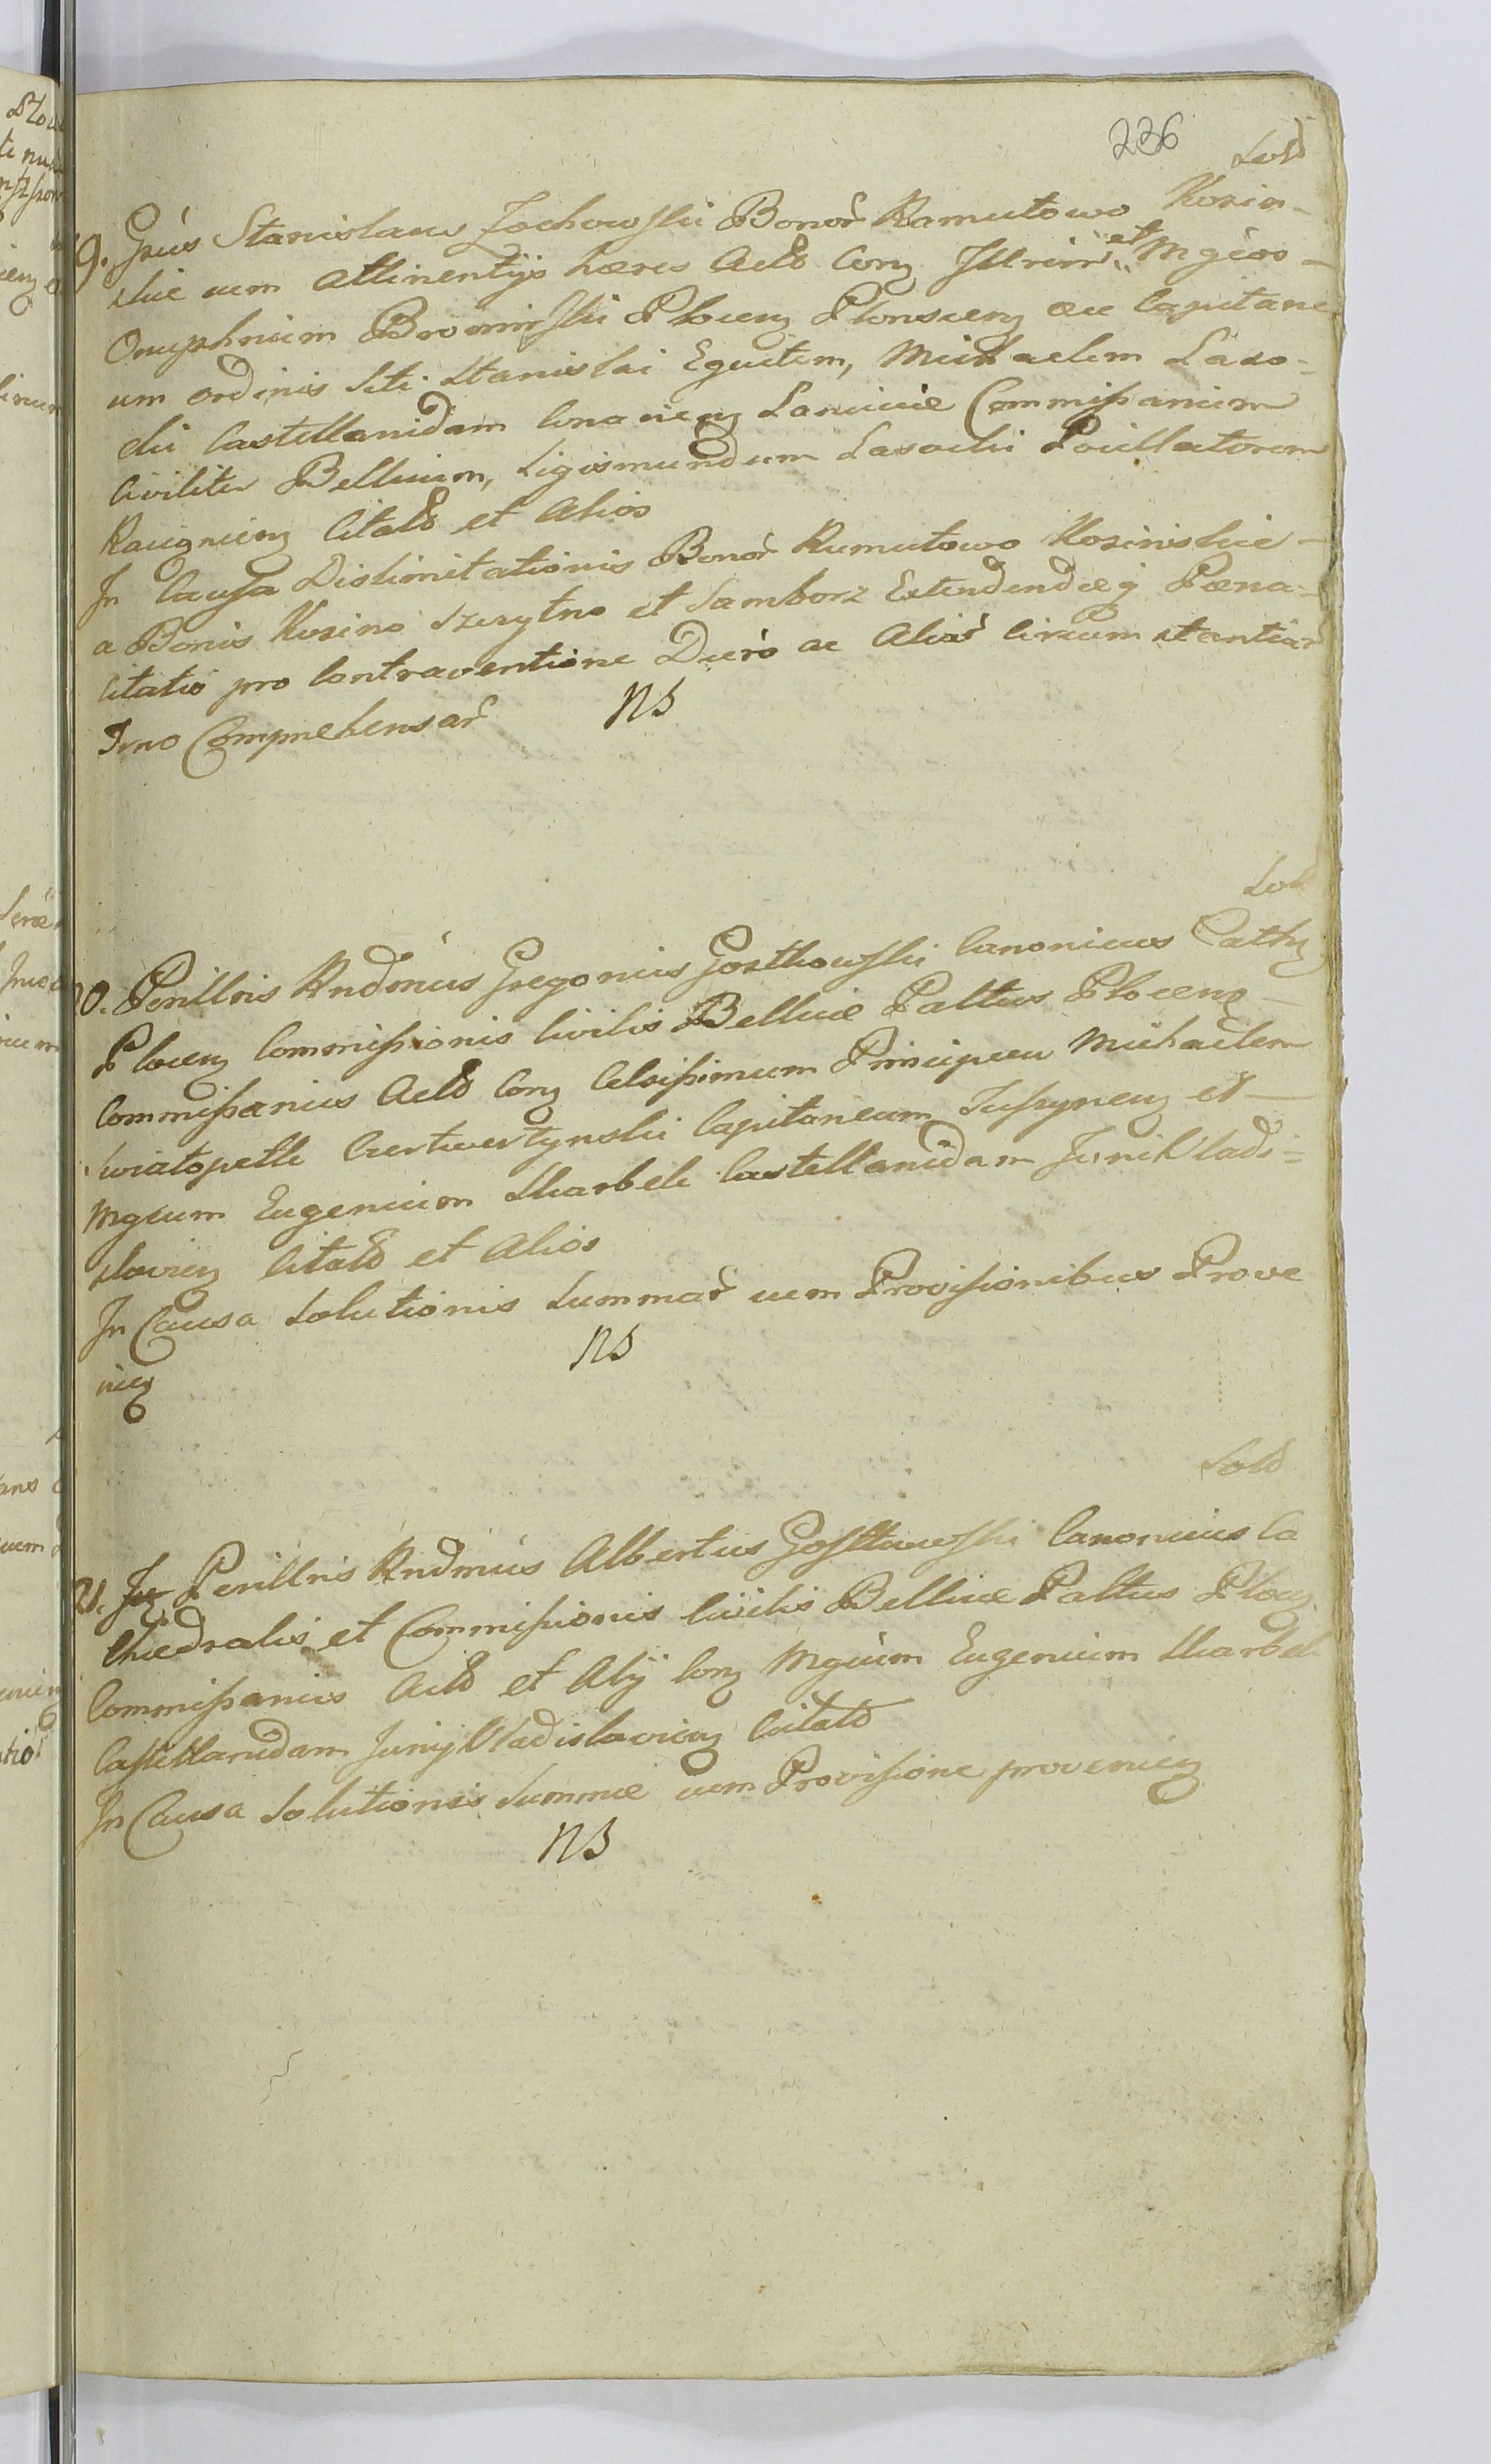 236
Sold
19. Grus Stanislaus Zochowski Bonor̃ Ramutowo Kosin-
skie cum attinentijs haeres Actd Conq Illrim et Mgcos
Onuphrium Bromirski Plocenq Plonscenq ac Capitane
um ordinis Sti Stanislai Equitem, Michaelem Laso-
cki Castellanidam Conariensq Lanciciae Commissarium
Civilito Bellicum, Sigismundum Lasocki Pocillatorem
Raciqniensq Citatd et Alios
In Causa Dislimitationis Bonor̃ Rumutowo Kosinskie
a Bonis Kosino Szczytno et Samborz Extendendaeq Paena-
citatio pro Contraventione Ducro ac Aliar̃ Circumstantiar̃
Irno Comprehensar̃
NS
Sold
20. Perillris Rndmus Gregorius Gostkowski Canonicus Cathq
Plocenq Commissionis Civilis Bellicae Paltus Plocenq
Commissarius Actd Conq Celsissimum Principem Michaelem
Swiatopelk Czertwertynski Capitaneum Juszynenq et
Mgcum Eugenium Skarbek Castellanidam Juni Vladi=
slavienq Citatd et Alios
In Causa Solutionis Summar̃ cum Provisionibus Prove
nienq
NS
Sold
21. Perillris Rndmus Albertus Gostkowski Canonicus Ca
thedralis et Commissionis Civilis Bellicae Paltus Plocq
Commissarius Actd et Alij Conq Mgcum Eugenium Skarbek
Castellanidam Junij Vladislavienq Citatd
In Causa Solutionis Summae cum Provisione provenienq
NS